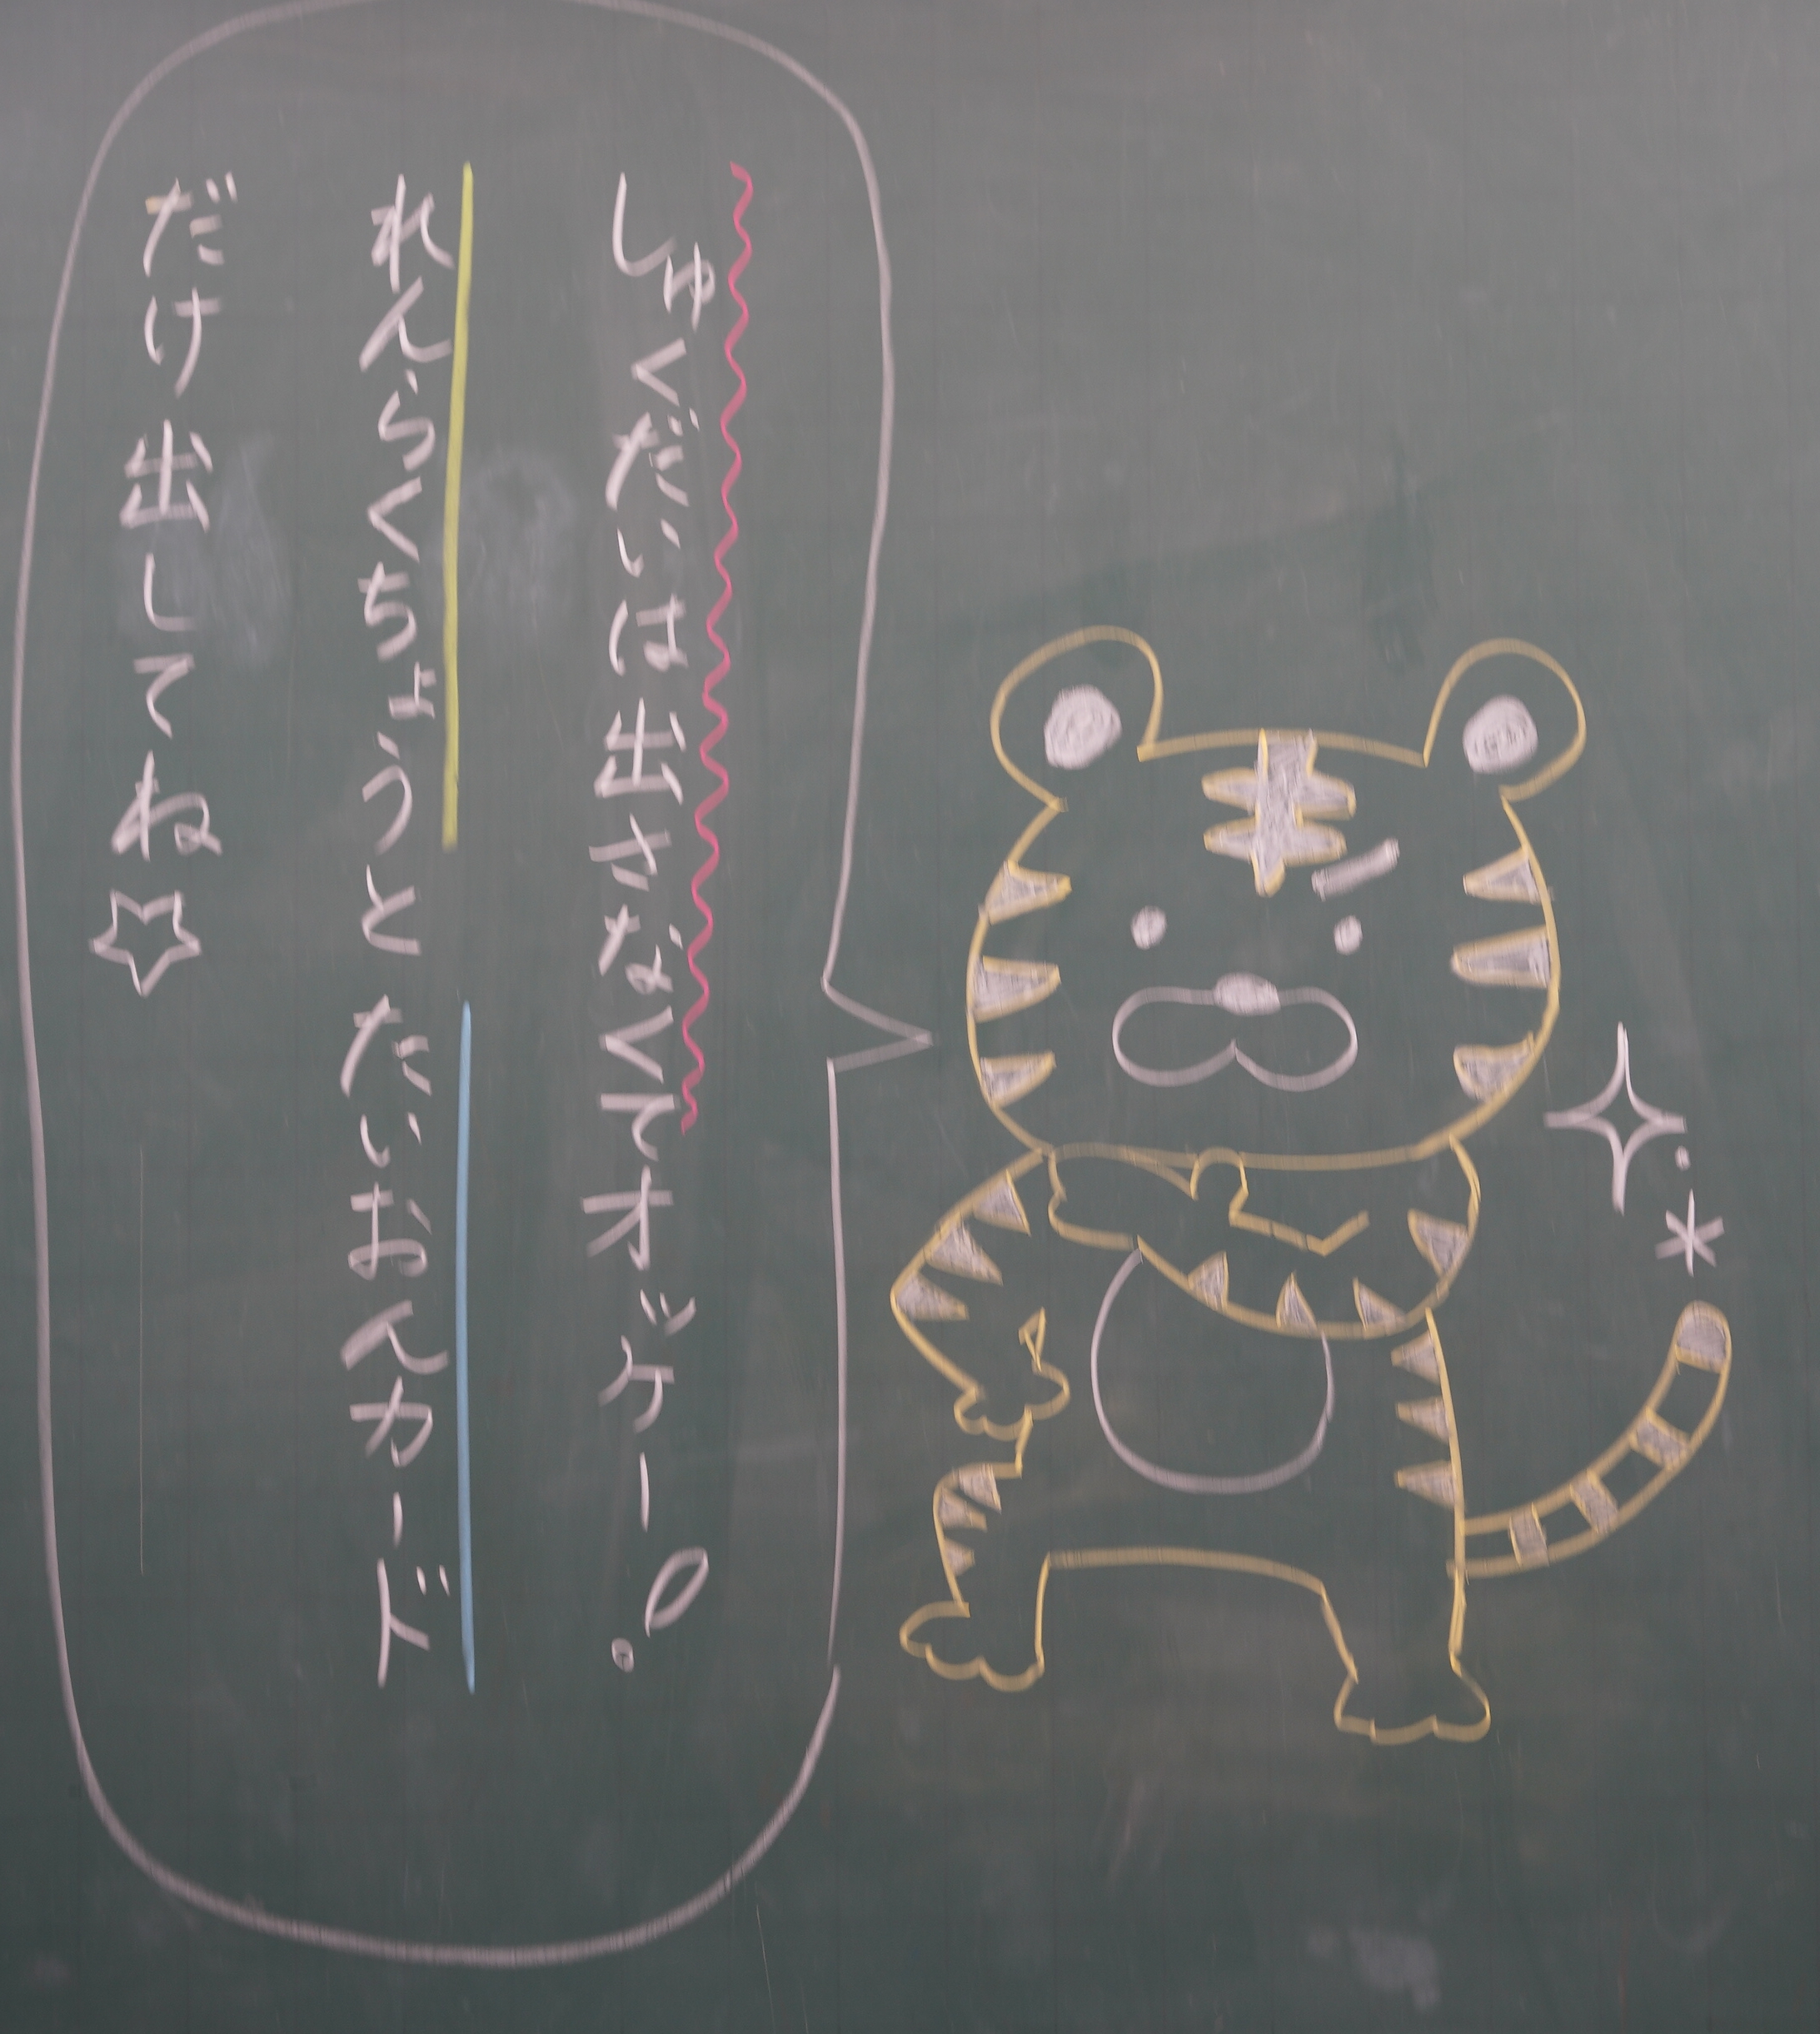 しゅくだいは出さなくてオッケー!。
れんらくちょうと だいおんカード
だけ出してね☆